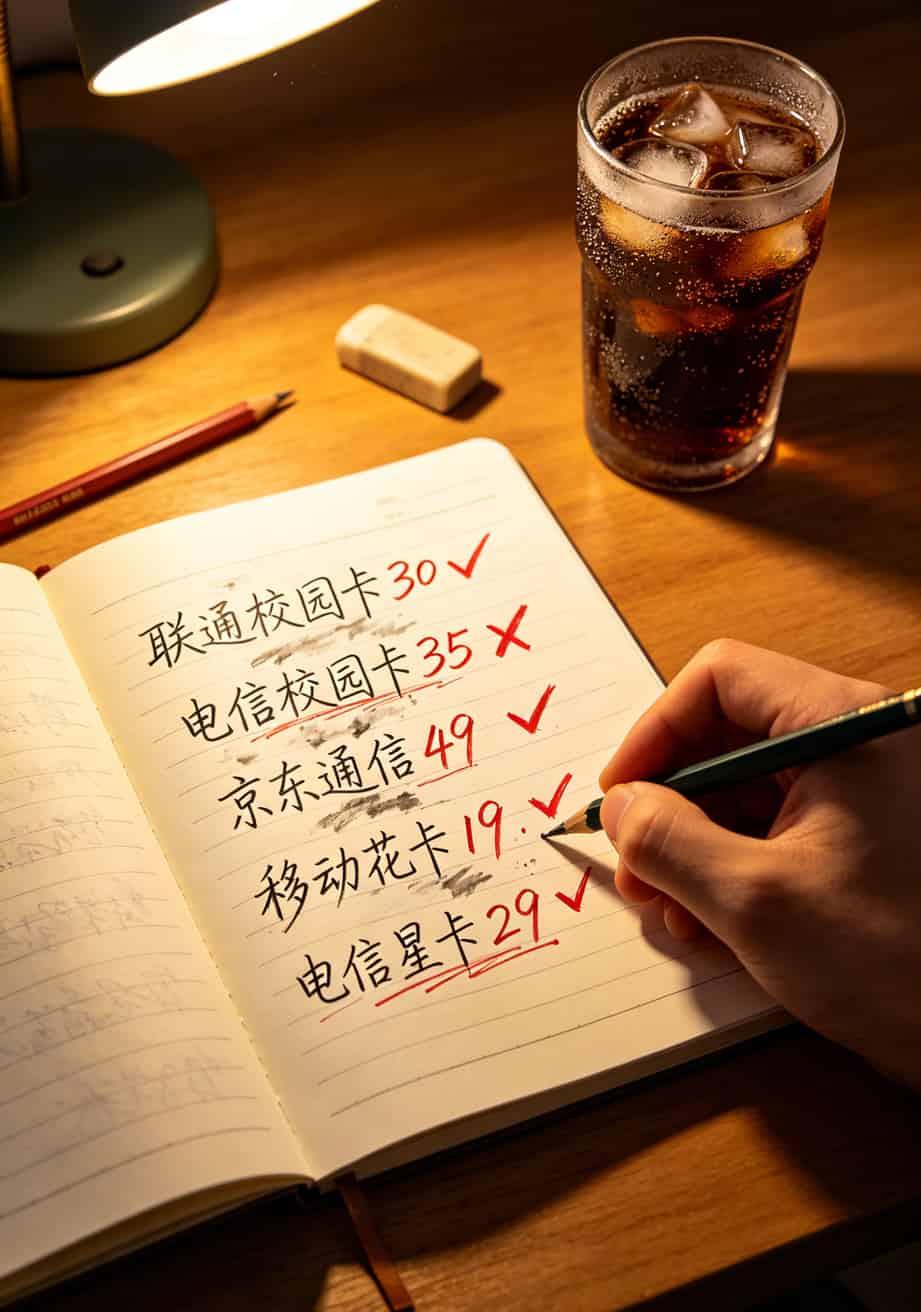 联通校园卡 30 ✓
电信校园卡 35 ✗
京东通信 49 ✓
移动花卡 19. ✓
电信星卡 29 ✓